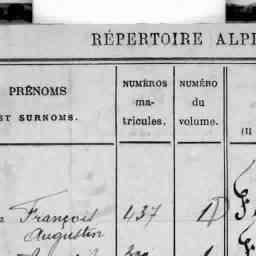 RÉPERTOIRE ALP
PRÉNOMS
ET SURNOMS.
NUMÉROS
ma-
tricules.
NUMÉRO
du
volume.
François 437
Augustin